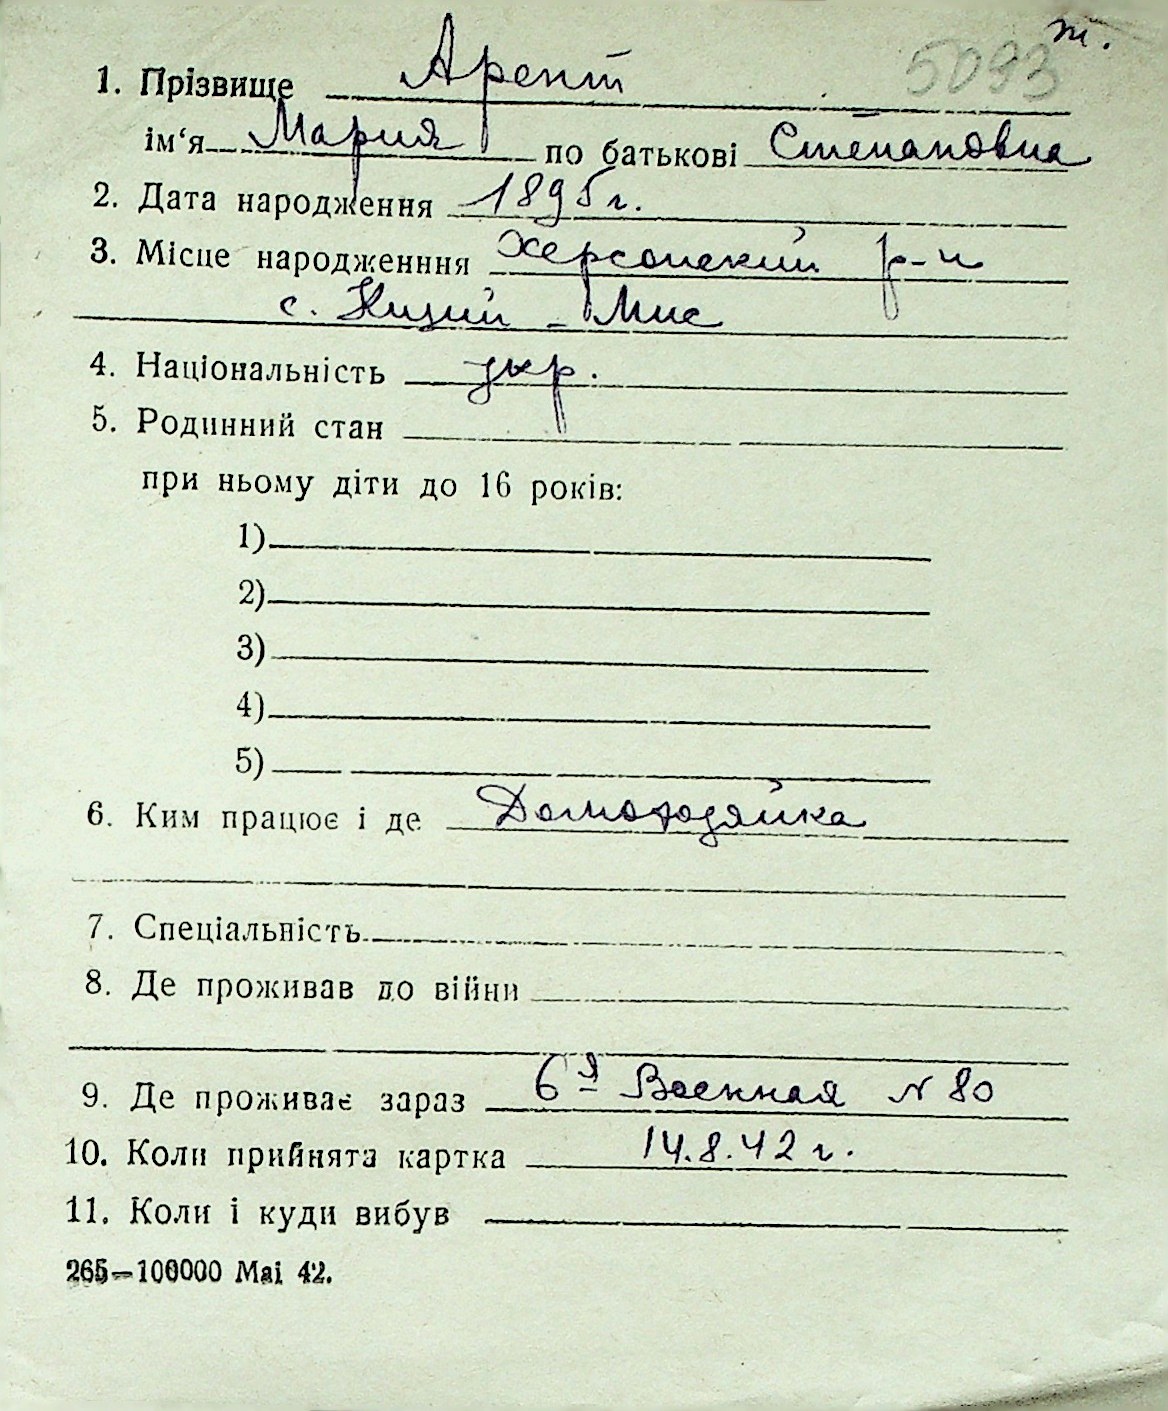 т.
5093
1. Прізвище Арент
ім‘я Мария по батькові Степановна
2. Дата народження 1895 г.
3. Місце народженння Херсонский р-н
с. Кизий - Мис
4. Національність укр.
5. Родинний стан
при ньому діти до 16 років:
1)
2)
3)
4)
5)
6. Ким працює і де Домохозяйка
7. Спеціальність
8. Де проживав до війни
9. Де проживає зараз 6я Военная № 80
10. Коли прийнята картка 14.8.42 г.
11. Коли і куди вибув
265—100000 Mai 42.